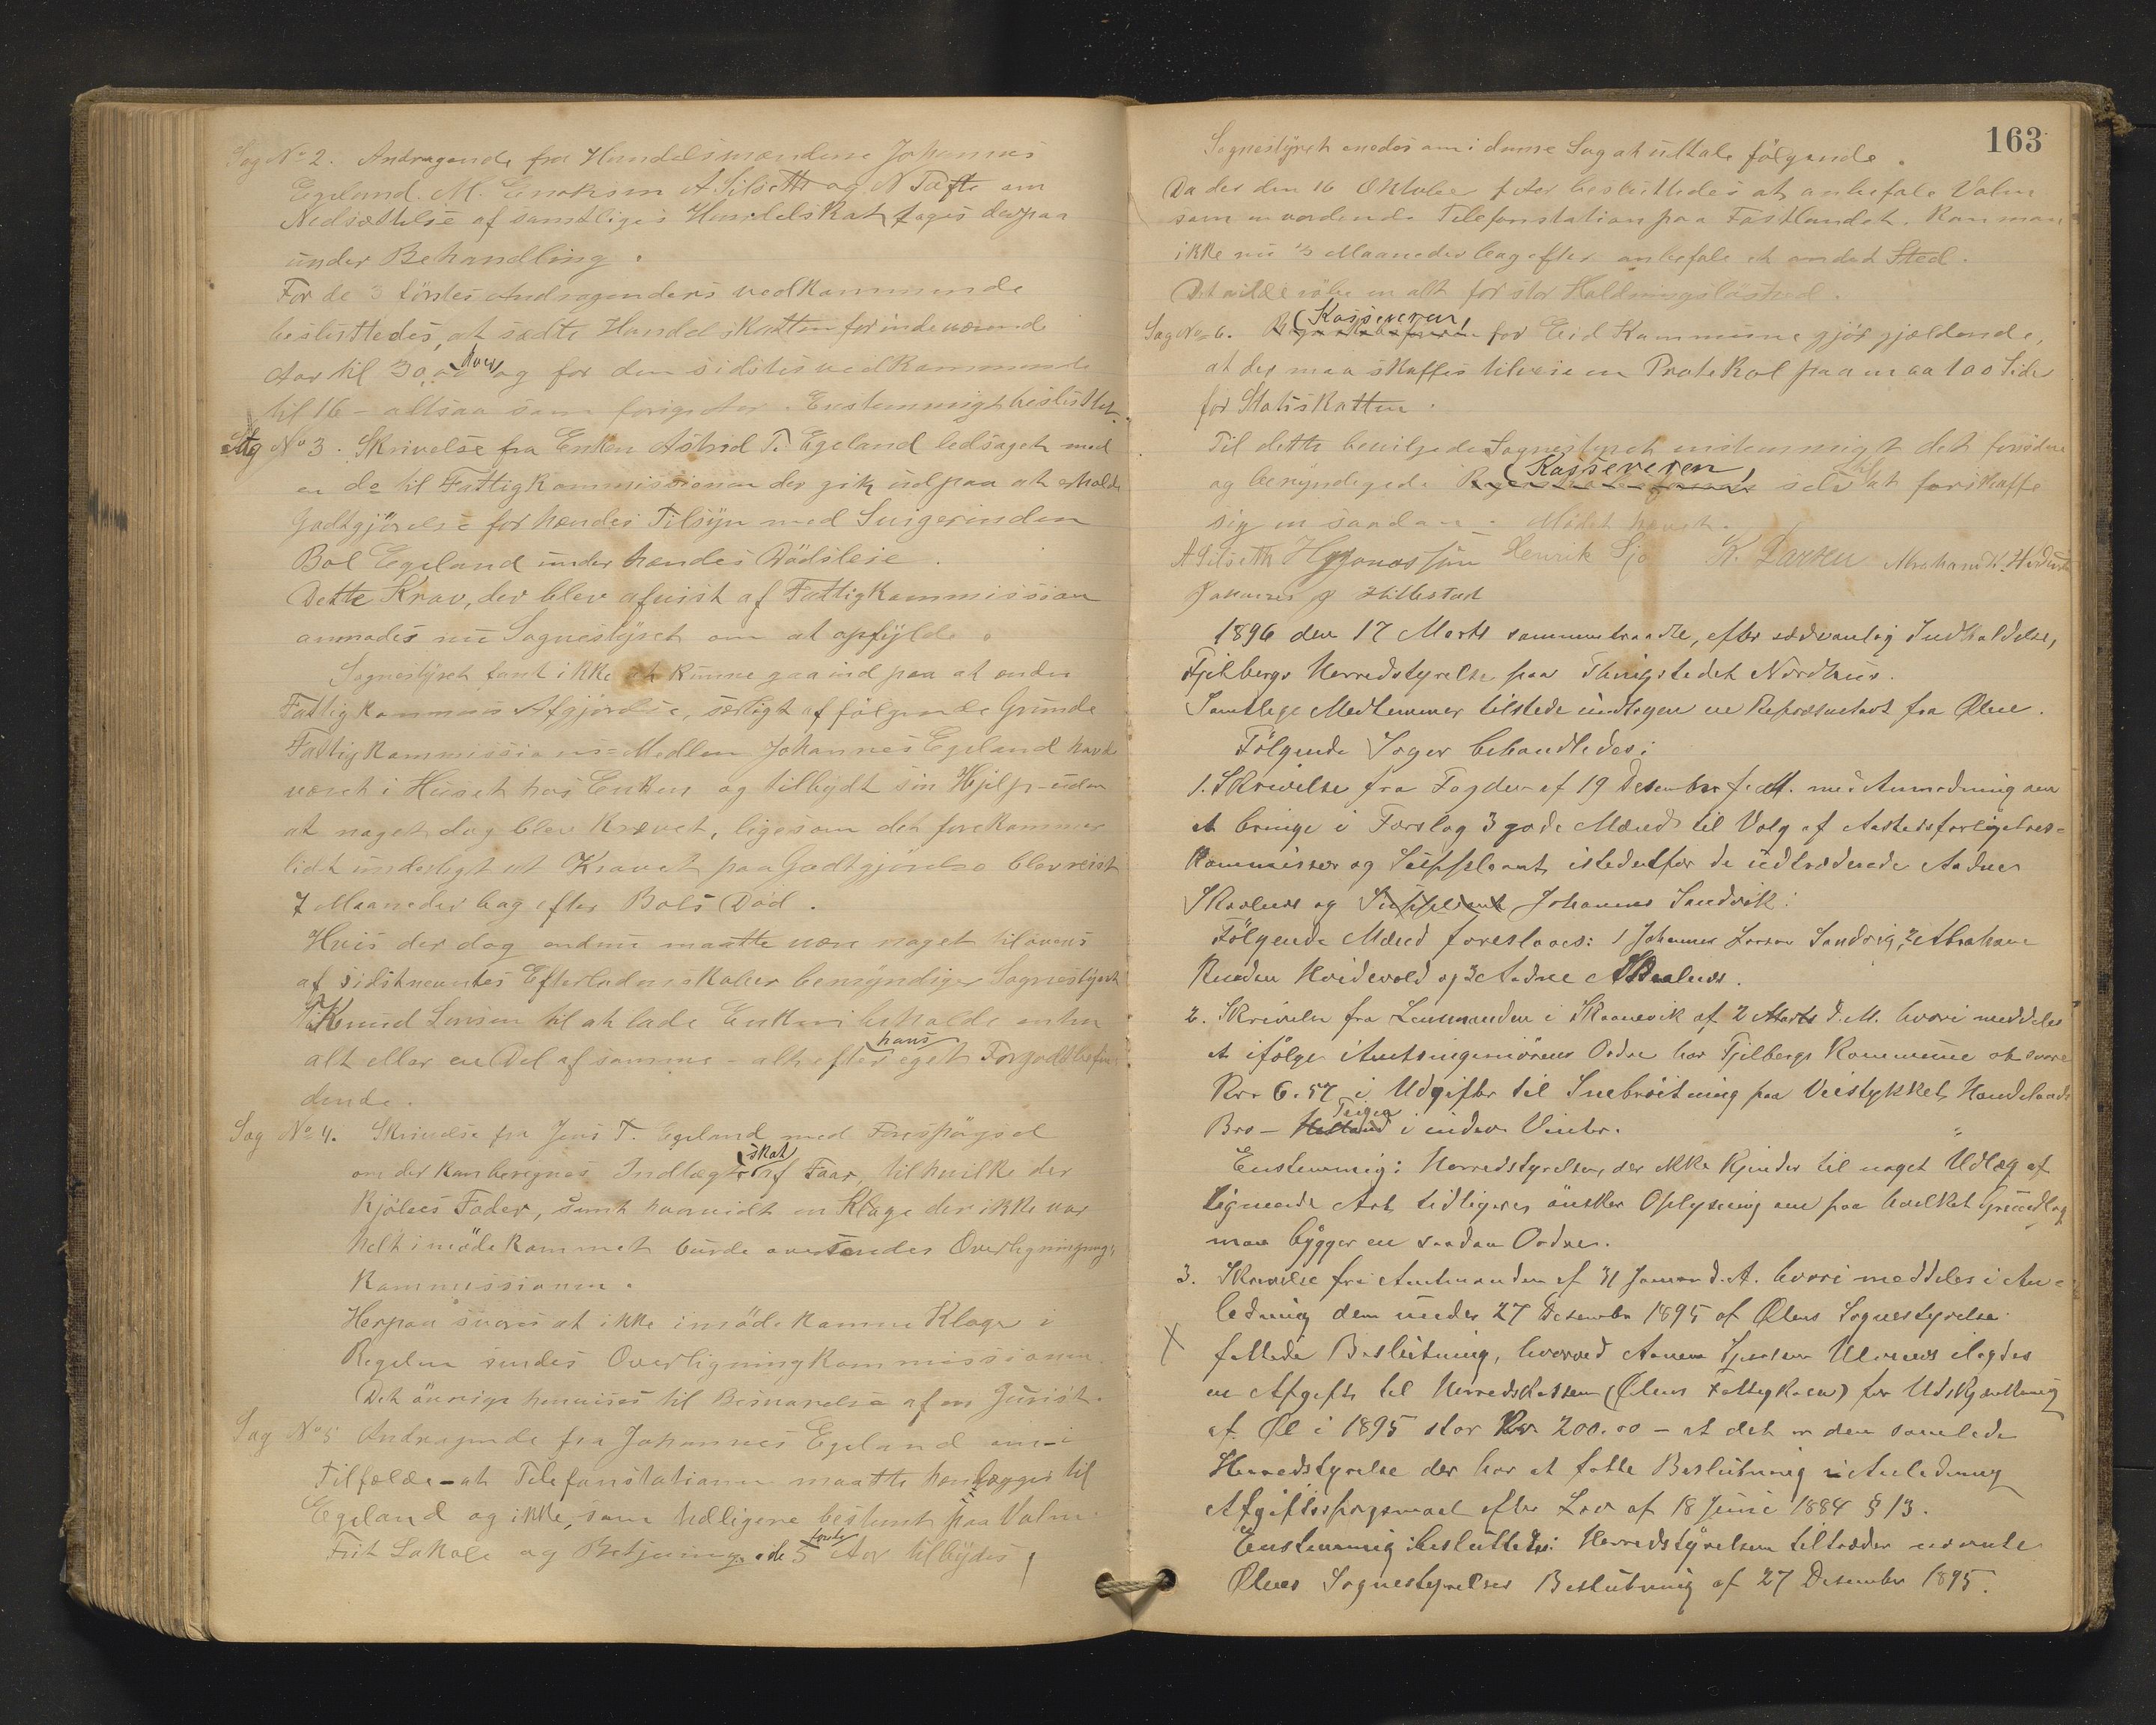 Sag No 2. Andragende fra Handelsmændene Johannes
Egeland. M. Enoksen A. Silseth og N Tofte om
Nedsættelse af samtliges Handelskat toges derpaa
under Behandling.
For de 3 förstes Andragenders vedkommende
besluttedes, at sætte Handelskatten for indeværende
Aar til 30,00 hver og for den sidstes vedkommende
til 16 - altsaa som forige Aar. Enstemmigt besluttet.
Sag No 3. Skrivelse fra Enken Astrid T. Egeland ledsaget med
en do til Fattigkommissionen der gik ud paa at erholde
Godtgjörelse for hendes Tilsyn med Svigerinden
Bol Egeland under hendes Dödsleie.
Dette Krav, der blev afvist af Fattigkommission
anmodes nu Sognestyret om at opfylde.
Sognestyret fant ikke at kunne gaa ind paa at endre
Fattigkommis Afgjörelse, særligt af fölgende Grunde
Fattigkommissions-Medlem Johannes Egeland havde
været i Huset hos Enken og tilbydt sin Hjelp - uden
at noget dog blev krævet, ligesom det forekommer
lidt underligt at Kravet paa Godtgjörelse blev reist
7 Maaneder bag efter Bols Död.
Hvis der dog endnu maatte være noget tilovers
af sidstnevntes Efterladenskaber bemyndiger Sognestyret
Knud Larsen til at lade Enken beholde enten
alt eller en Del af samme - alt efter hans eget Forgodtbefin-
dende.
Sag No 4. Skrivelse fra Jens T. Egeland med Forespörgsel
om der kan beregnes Indtægtsskat af Faar, til hvilke der
kjöbes Foder, samt hvorvidt en Klage der ikke var
helt imödekommet burde oversendes Overligningings
Kommissionen.
Herpaa svares at ikke imödekomne Klager i
Regelen sendes Overligningkommissionen.
Det övrige henvises til Besvarelse af en Jurist.
Sag No 5 Andragende fra Johannes Egeland om - i
Tilfælde - at Telefonstationen maatte henlægges til
Egeland og ikke, som tidligere bestemt paa Valen.
Frit Lokale og Betjening de 5 förste Aar tilbydes
163
Sognestyret enedes om i denne Sag at udtale fölgende.
Da der den 16 Oktober f Aar besluttedes at anbefale Valen
som vordende Telefonstation paa Fastlandet. Kan man
ikke nu 3 Maaneder bagefter anbefale et andet Sted.
Det vilde röbe en alt for stor Holdningslöshed.
Sag No 6. Kassereren for Eid Kommune gjör gjældende,
at der maa skaffes tilveie en Protokol paa ca 100 Sider
for Statsskatten.
Til dette bevilgede Sognestyret enstemmigt det fornödne
og bemyndigede Kassereren selv til at forskaffe
sig en saadan. Mödet hævet.
A Silseth H Jonassön Henrik Sjo K. Larsen Abraham K. Hvidevold
Johannes J Hillestad
1896 den 17 Marts sammentraadte, efter sædvanlig Indkaldelse,
Fjelbergs Herredstyrelse paa Thingstedet Nordhuus.
Samtlige Medlemmer tilstede undtagen en Repræsentant fra Ölen.
Fölgende Sager behandledes:
1. Skrivelse fra Fogden af 19 Desember f. A. med Anmodning om
at bringe i Forslag 3 gode Mænd til Valg af Aastedsforligelses-
kommissær og Suppleant istedetfor de udtrædende Aadne
Skaalnes og Suppleant Johannes Sandvik:
Fölgende Mænd foreslaaes: 1 Johannes Larsen Sandvig, 2 Abraham
Knudsen Hvidevold og 3 Aadne Skaalnes.
2. Skrivelse fra Lensmanden i Skaanevik af 2 Marts d. M. hvori meddeles
at ifölge Amtsingeniörens Ordre har Fjelbergs Kommune at svare
Kr. 6.57 i Udgifter til Snebröitning paa Veistykket, Haandelands
Bro - Teigen i inder Vinter.
Enstemmig: Herredstyrelsen, der ikke kjender til noget Udlæg af
lignende Art tidligere, önsker Oplysning om paa hvilket Grundlag
man bygger en saadan Ordre.
3. Skrivelse fra Amtmanden af 31 Januar d. A. hvori meddeles i An-
ledning den under 27 Desember 1895 af Ölens Sognestyrelse
X fattede Beslutning, hvorved Ulvenes ilagdes
en Afgift til Herredskassen (Ölens Fattigkasse) for Udskjænkning
af Öl i 1895 stor Kr 200.00 - at det er den samlede
Herredstyrelse der har at fatte Beslutning i Anledning
Afgiftsspörgsmaal efter Lov af 18 Juni 1884 § 13.
Enstemmig besluttedes: Herredstyrelsen tiltræder nævnte
Ölens Sognestyrelses Beslutning af 27 Desember 1895.